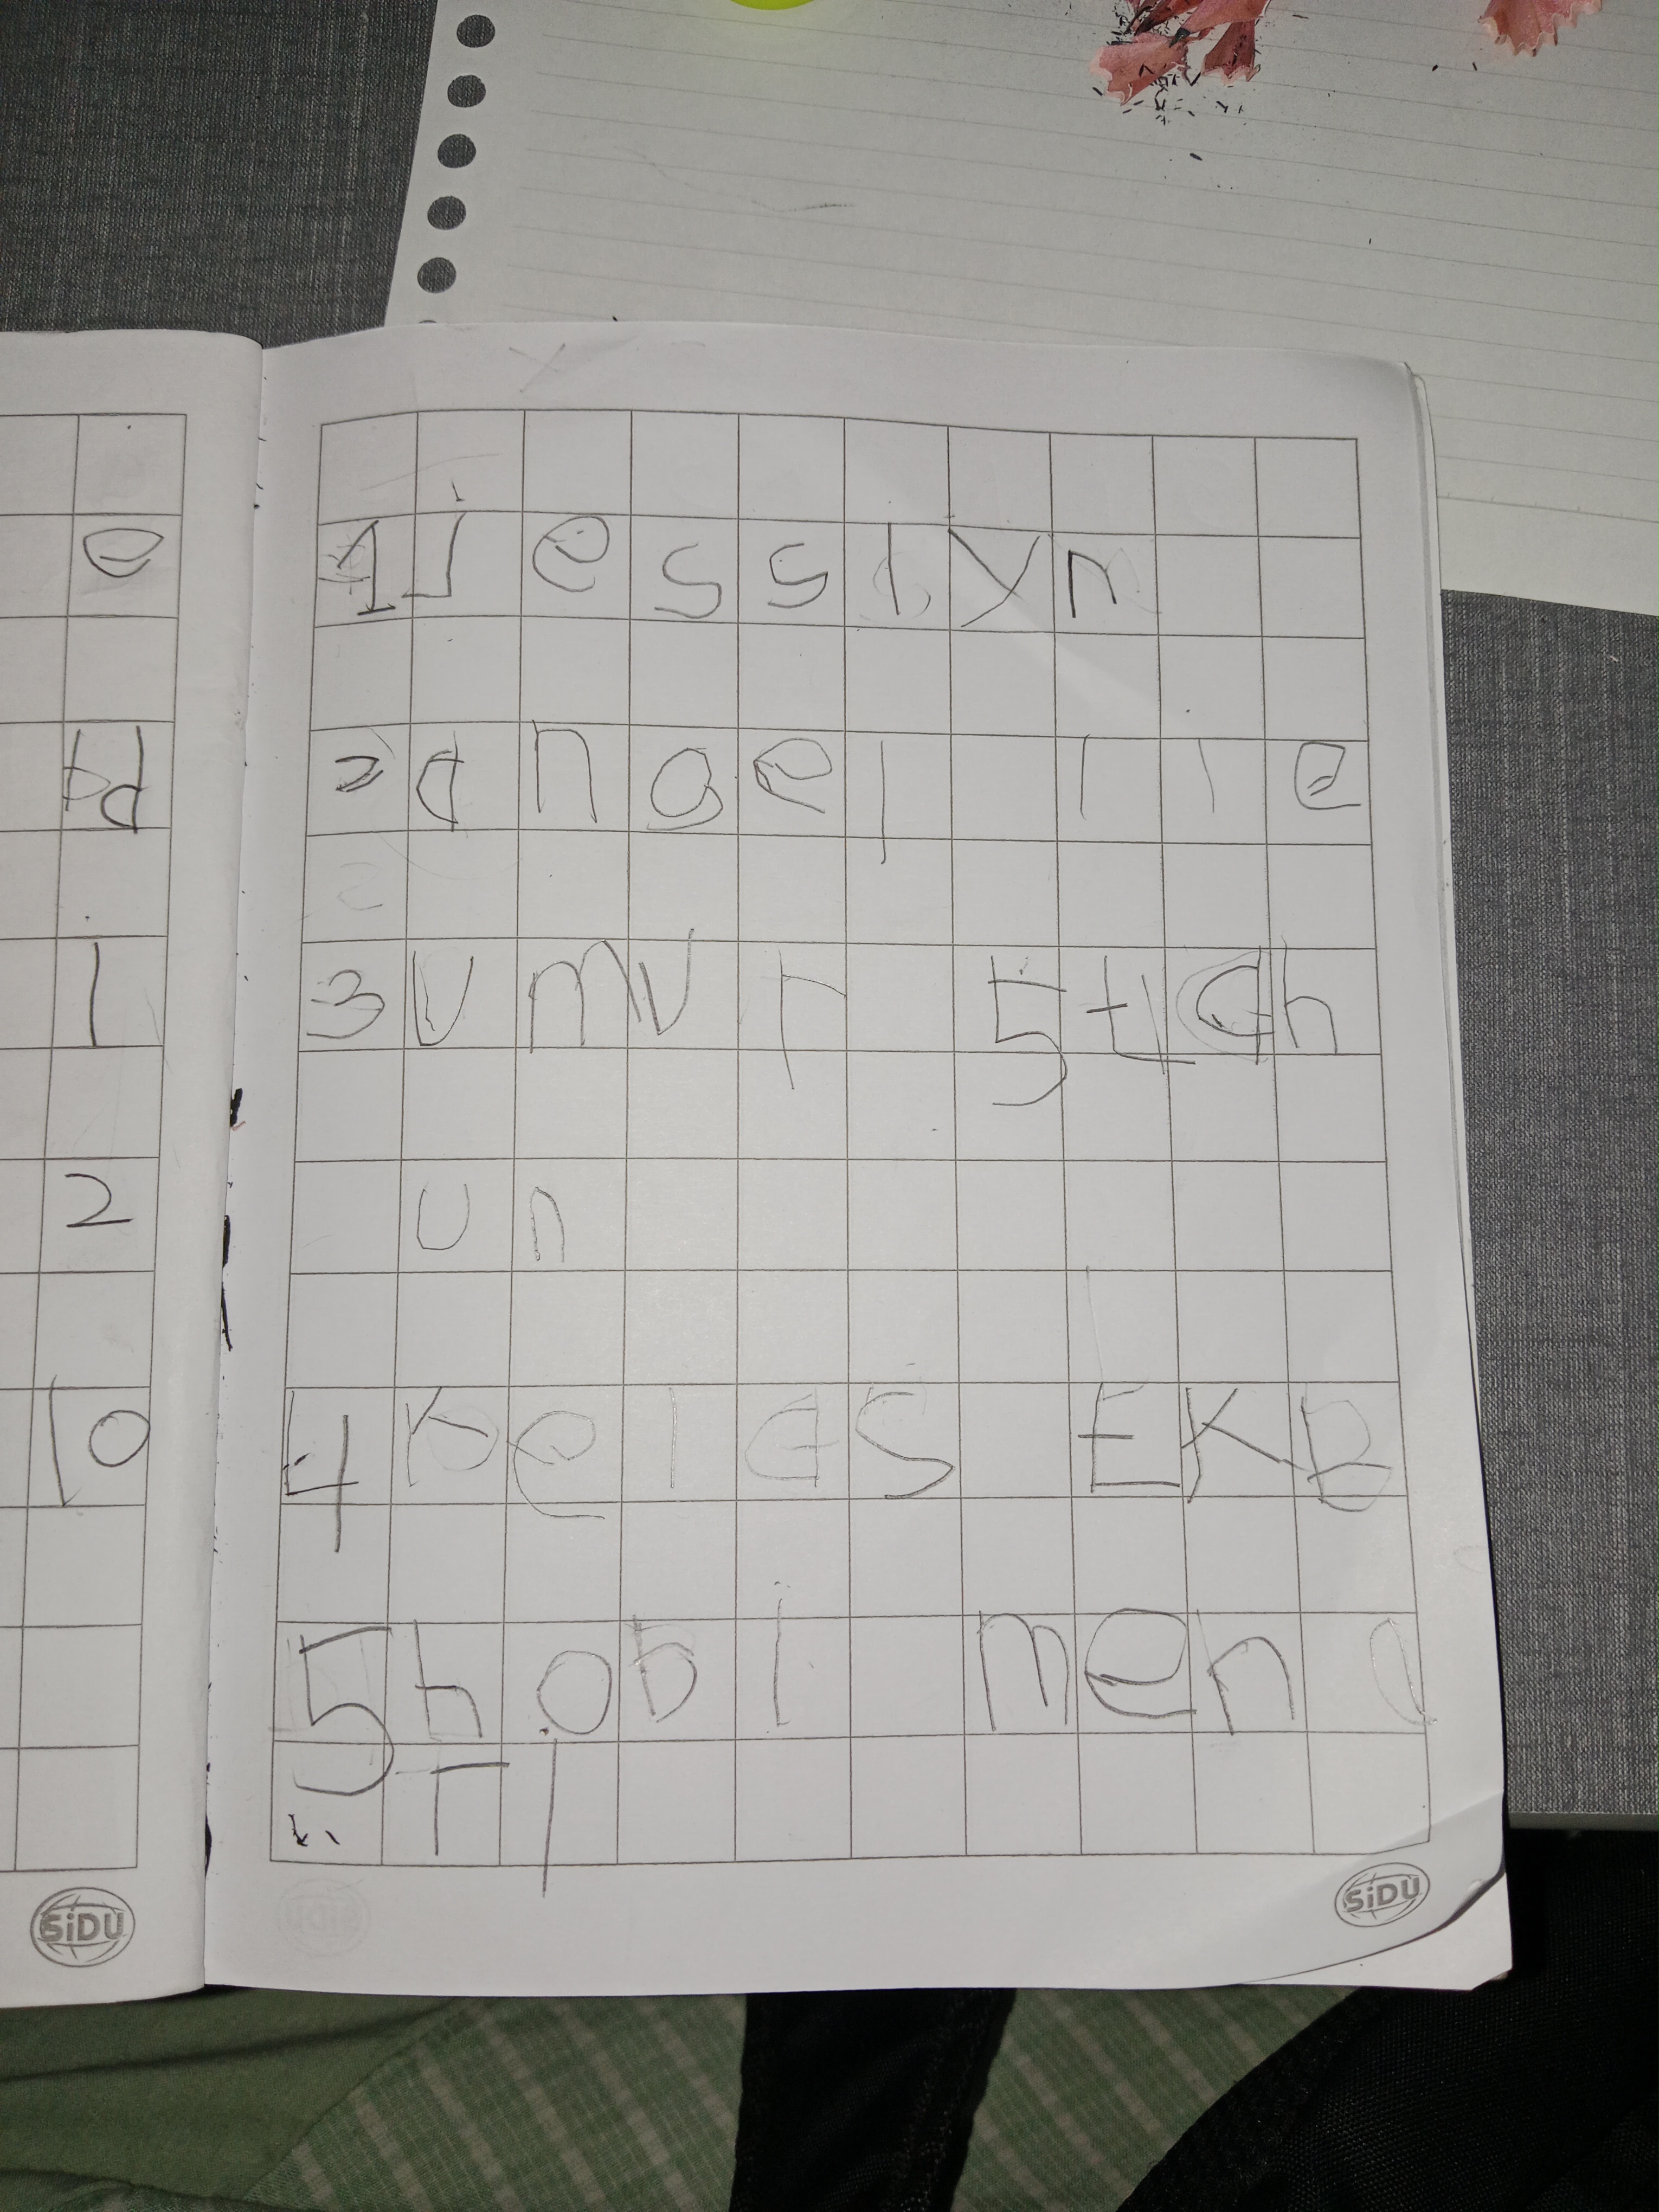 e
bd
1
2
10
1 jesslyn
2 angel lie
3 umur 5 tah
un
4 kelas EKB
5 hobi mena
Ti
SiDU
SiDU